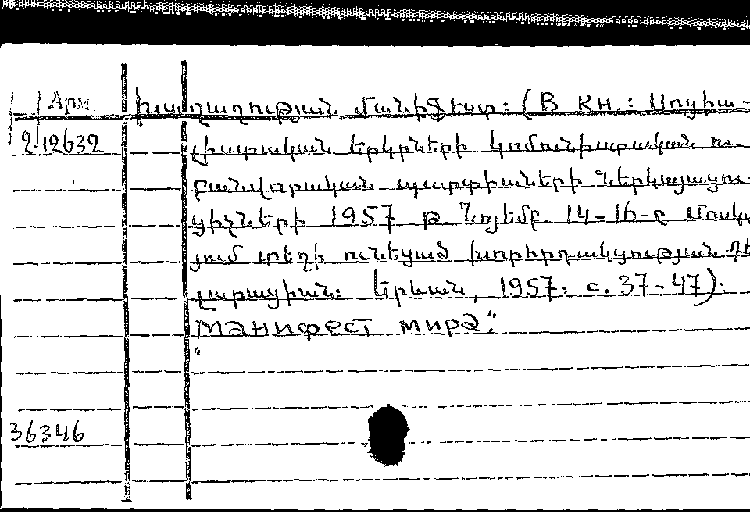 Арм. խաղաղության մանիֆեստ: (В кн.: Սոցիա-
2.12632 լիստական երկրների կոմունիստական ու
բանվորական պարտիաների ներկայացու-
ցիչների 1957 թ. նոյեմբ. 14-16-ը Մոսկվ
յում տեղի ունեցած խորհրդակցության դե
լարացիան: Երևան, 1957. с. 37-47).
Манифест мира".
36346